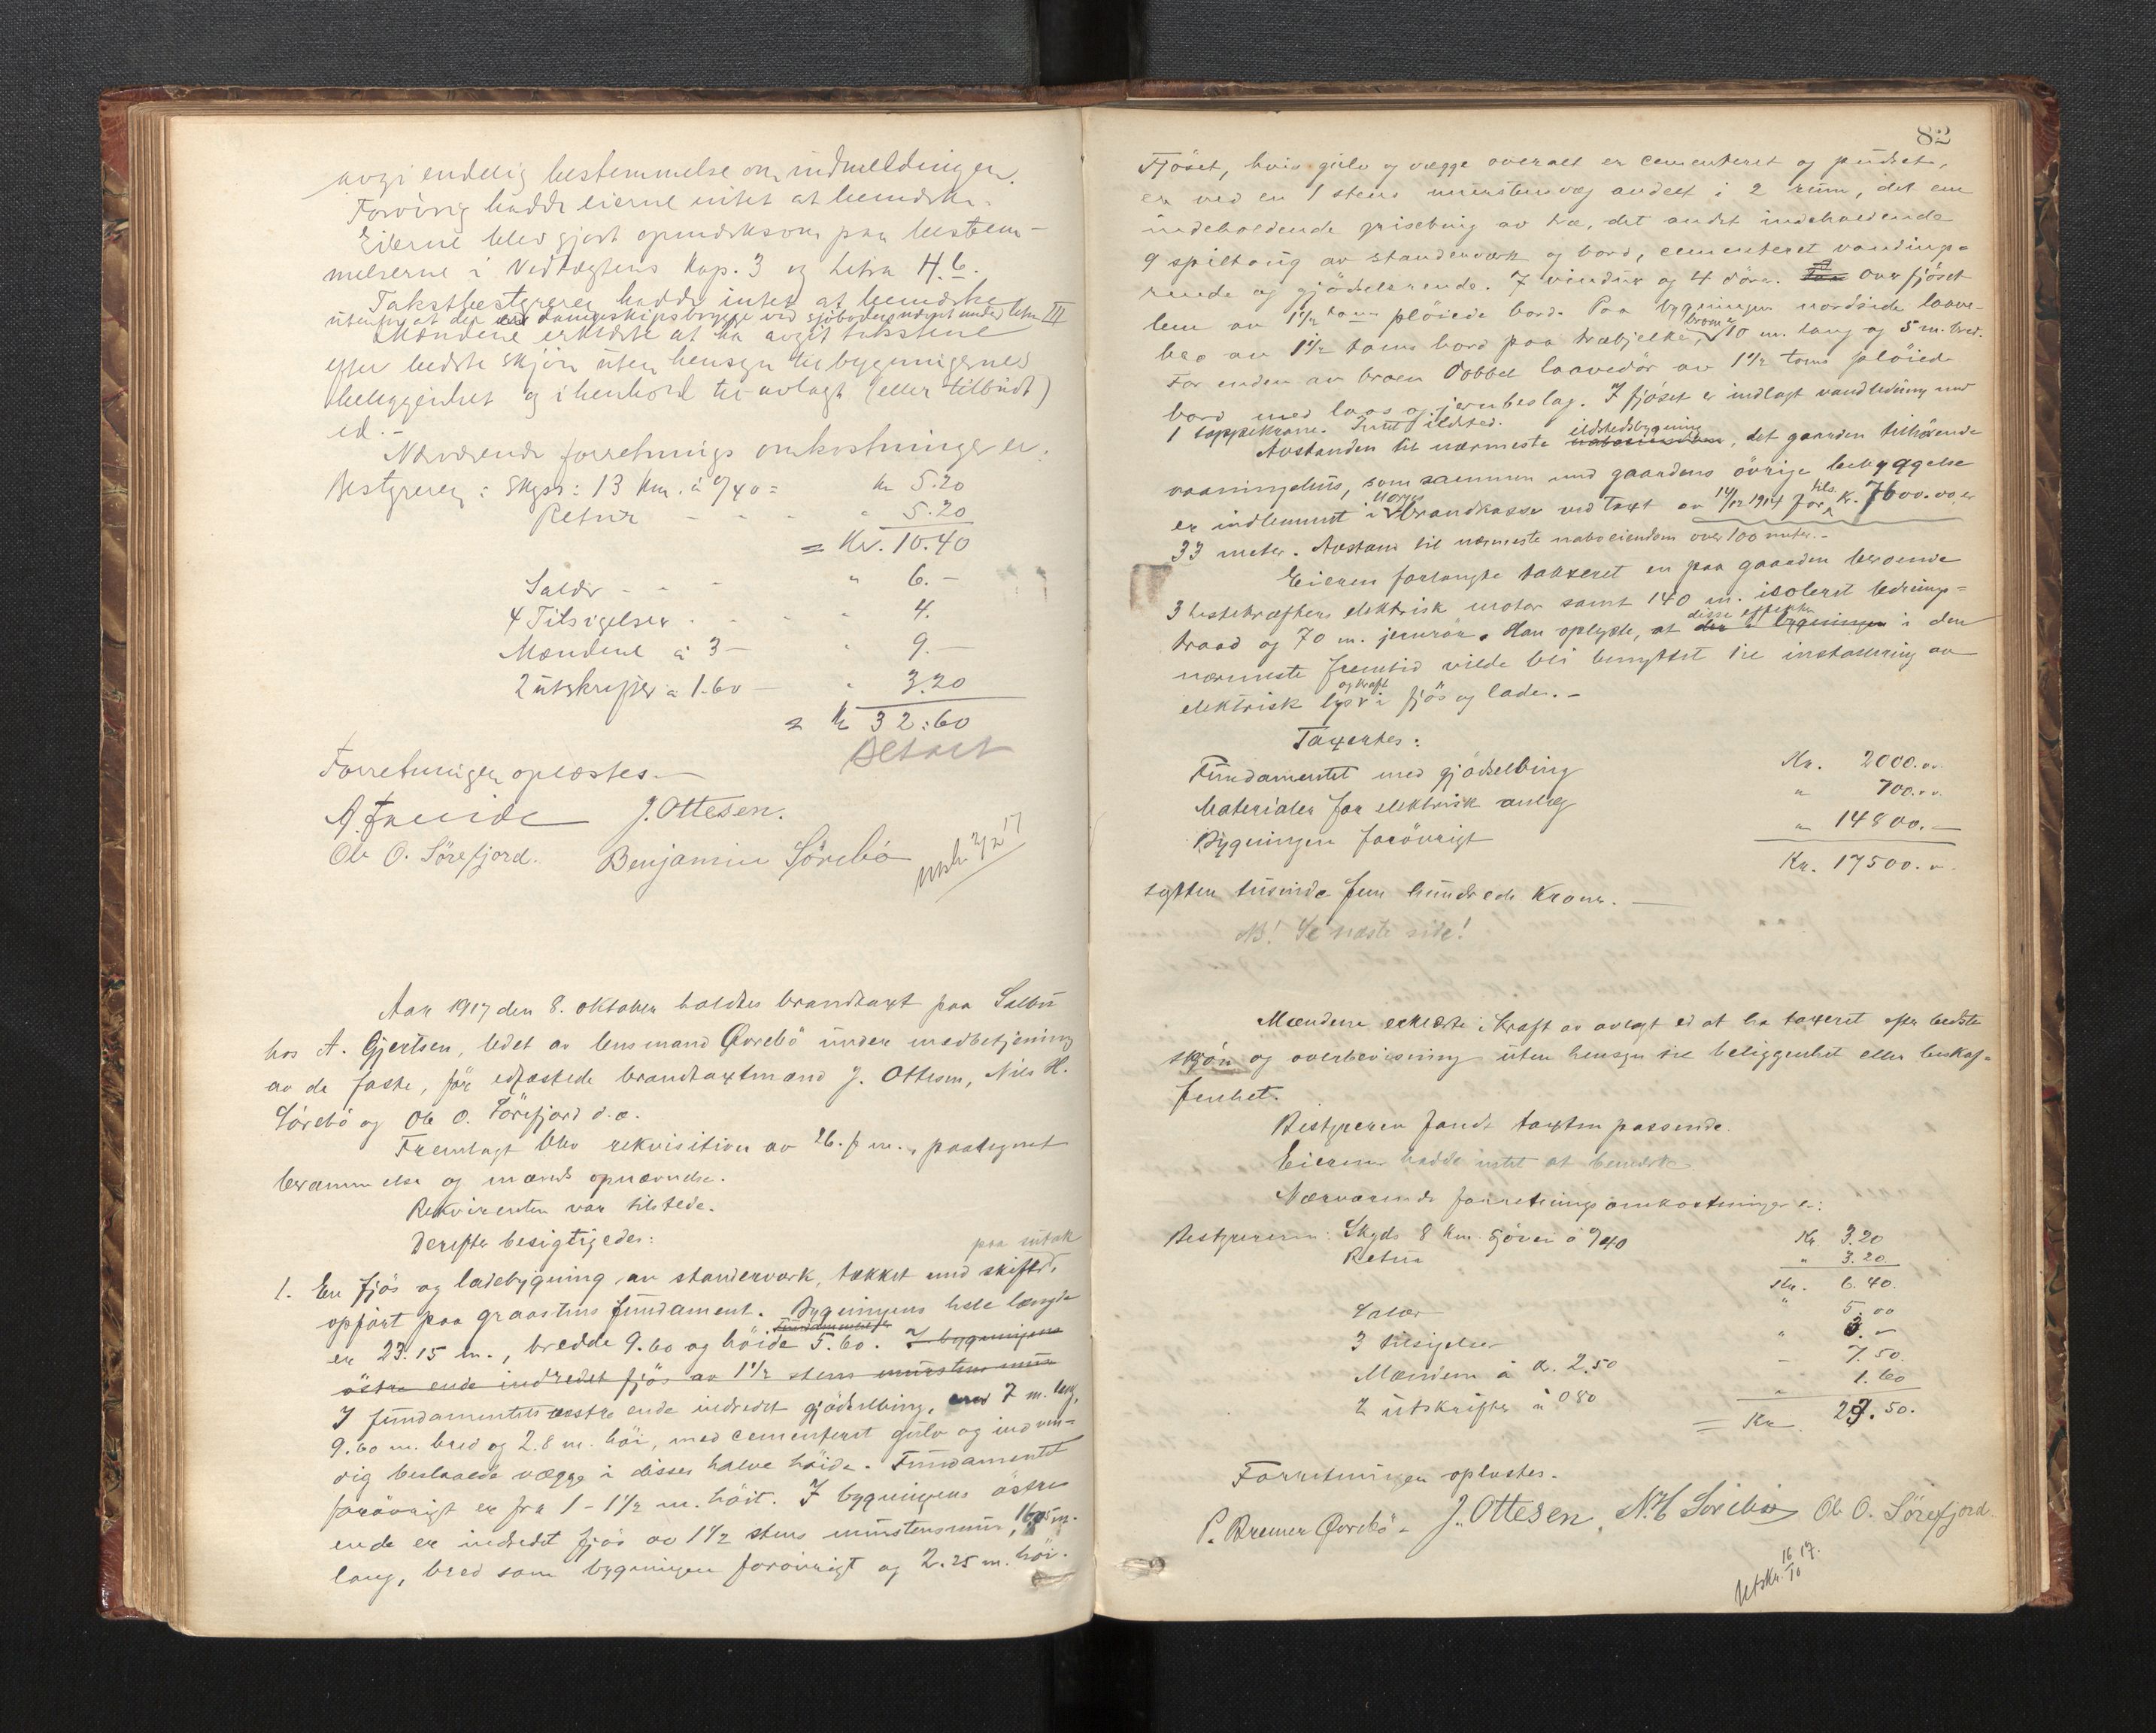 avgi endelig bestemmelse om indmeldingen.
Forövrig hadde eierne intet at bemerke.
Eierne blev gjort opmerksom paa bestem-
melserne i Vedtægtens Kap. 3 og Litra H. 6.
Takstbestyreren hadde intet at bemerke
utenfor at der ved dampskipsbrygge ved sjöboden nævnt under litra III
Mændene erklærte at ha avgit takstene
efter bedste skjön uten hensyn til bygningernes
beliggenhet og i henhold til avlagt (eller tilbudt)
ed. -
Nærværende forretnings omkostninger er:
Bestyreren: Skyss: 13 km. à 0/40 = kr 5.20
Retur - - - " 5.20
= Kr. 10.40
Salær - - " 6. -
4 Tilsigelser - - - 4.
Mændene à 3 - " 9. -
2 utskrifter à 1.60 - " 3.20
= kr 32:60
Betalt
Forretningen oplæstes. -
J. Ottesen.
Ole O. Sörefjord. Benjamin Sörebö
Utsk. 2/2 17
Aar 1917 den 8. oktober holdtes brandtaxt paa Salbu
hos A. Gjertsen, ledet av lensmand Övrebö under medbetjening
av de faste, för edfæstede brandtaxtmænd J. Ottesen, Nils H.
Sörebö og Ole O. Sörefjord d.o.
Fremlagt blev rekvisition av 26. f. m., paategnet
berammelse og mænds opnævnelse.
Rekvirenten var tilstede.
Derefter besigtigedes:
paa sutak
1. En fjös og ladebygning av standerverk, tækket med skifer,
opfört paa graastens fundament. Bygningens hele længde
er 23.15 m., bredde 9.60 og höide 5.60. I bygningens
östre ende indredet fjös av 1 1/2 stens murstens mur
I fundamentets vestre ende indredet gjödselbing, 7 m. lang,
9.60 m. bred og 2.8 m. höi, med cementeret gulv og indven-
dig beslaaede vægge i disses halve höide. Fundamentet
forövrigt er fra 1 - 1 1/2 m. höit. I bygningens östre
ende er indredet fjös av 1 1/2 stens murstensmur, m.
lang, bred som bygningen forövrigt og 2.25 m. höi.
82
Fjöset, hvis gulv og vægge overalt er cementeret og pudset,
er ved en 1 stens murstensvæg andelt i 2 rum, det ene
indeholdende grisebing av træ, det andet indeholdende
9 spiltaug av standerverk og bord, cementeret vandings-
rende og gjödselrende. 7 vinduer og 4 döre. over fjöset
lem av 1 1/2 toms plöiede bord. Paa bygningens nordside laave-
bro av 1 1/2 toms bord paa træbjelker, broen er 10 m. lang og 5 m. bred.
For enden av broen dobbel laavedör av 1 1/2 toms plöiede
bord med laas og jernbeslag. I fjöset er indlagt vandledning med
1 tappekrane. Intet ildsted.
Avstanden til nærmeste ildstedsbygning, det gaarden tilhörende
vaaningshus, som sammen med gaardens övrige bebyggelse
er indlemmet i Norges Brandkasse ved taxt av 14/12 1914 for tils. Kr. 7600.00, er
33 meter. Avstand til nærmeste naboeiendom over 100 meter. -
Eieren forlangte taxeret en paa gaarden beroende
3 hestekræfters elektrisk motor samt 140 m. isoleret lednings-
traad og 70 m. jernrör. Han oplyste, at disse effekter i den
nærmeste fremtid vilde bli benyttet til installering av
elektrisk lys og kraft i fjös og lade. -
Taxertes:
Fundamentet med gjödselbing Kr. 2000.00
Materialer for elektrisk anlæg " 700.00
Bygningen forövrigt " 14800. -
Kr. 17500.00
sytten tusinde fem hundrede Kroner. -
NB! Se næste side!
Mændene erklærte i kraft av avlagt ed at ha taxeret efter bedste
skjön og overbevisning uten hensyn til beliggenhet eller beskaf-
fenhet.
Bestyreren fandt taxten passende.
Eieren hadde intet at bemerke.
Nærværende forretnings omkostninger er:
Bestyreren: Skyds 8 km. Sjövei à 0/40 Kr 3.20
Retur " 3.20
Kr. 6.40.
Salær " 5.00
3 tilsigelser " 3. -
Mændene à kr. 2.50 - 7.50.
2 utskrifter à 0 80 " 1.60
= Kr. 23.50.
Forretningen oplæstes.
P. Bremer Övrebö - J. Ottesen, N. H. Sörebö Ole O. Sörefjord.
Utskr. 16/10 17.